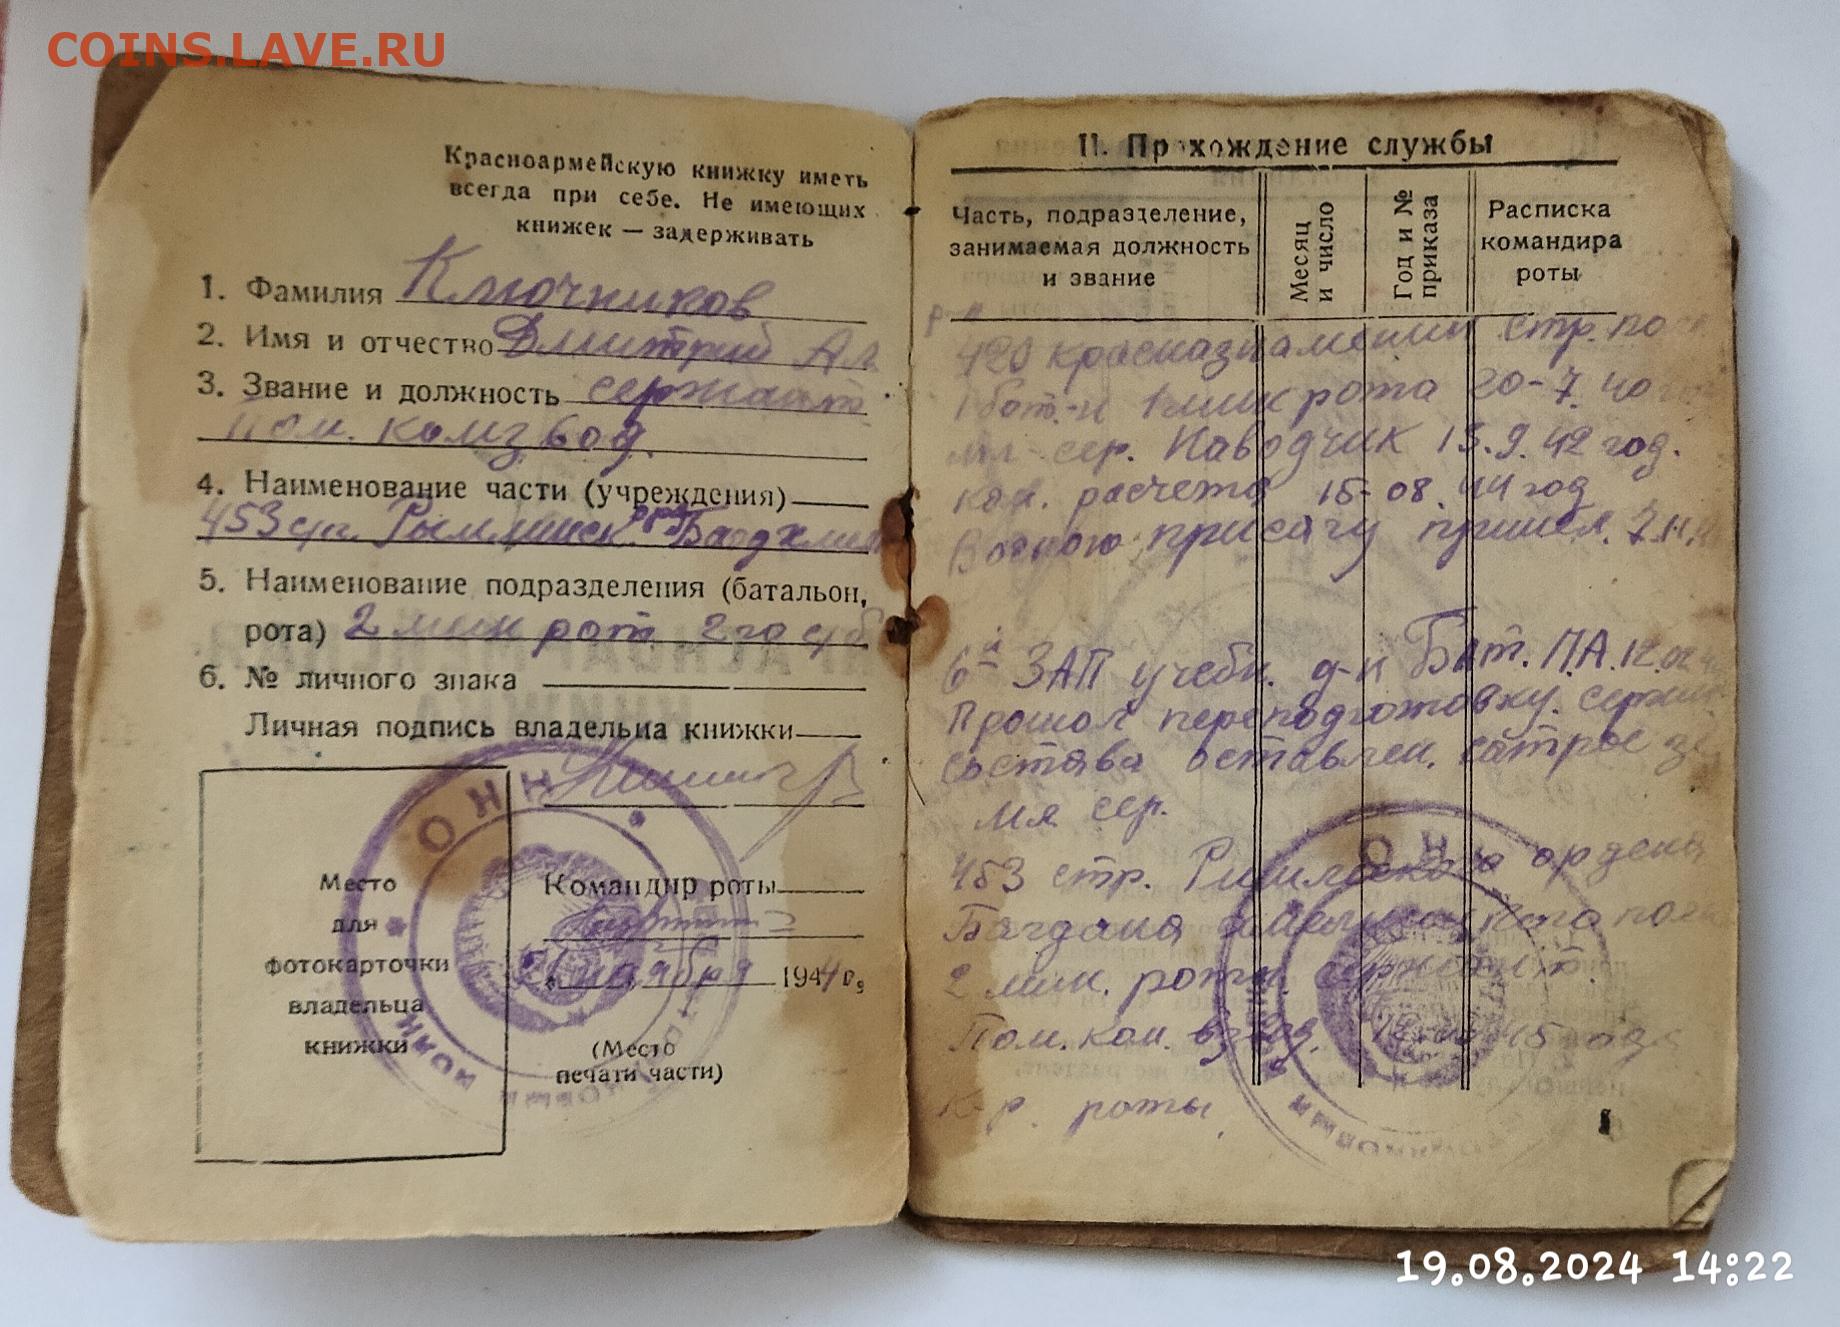 COINS.LAVE.RU
Красноармейскую книжку иметь
всегда при себе. Не имеющих
книжек — задерживать
1. Фамилия Ключников
2. Имя и отчество Дмитрий Ал
3. Звание и должность сержант
Пом. комзвод.
4. Наименование части (учреждения)
453 сп.
5. Наименование подразделения (батальон,
рота) 2 мин рот 2го сб
6. № личного знака
Личная подпись владельца книжки
Место
для
фотокарточки
владельца
книжки
Командир роты
ноября 1944 г.
(Место
печати части)
II. Прохождение службы
Часть, подразделение,
занимаемая должность
и звание
Месяц
и число
Год и №
приказа
Расписка
командира
роты
стр. по
1 бат-н 1 мин рота 20-7. 40
мл сер. Наводчик 13.9.42 год.
ком. расчета 15-08.44 год
присягу
6й ЗАП учебн. д-н Бат. П.А. 12.02
Прошол переподготовку. серж
состава оставлен.
мл сер.
453 стр. ордена
Багдана
2 мин. роты сержант
Пом. ком. взвод. 45
к-р. роты
1
19.08.2024 14:22